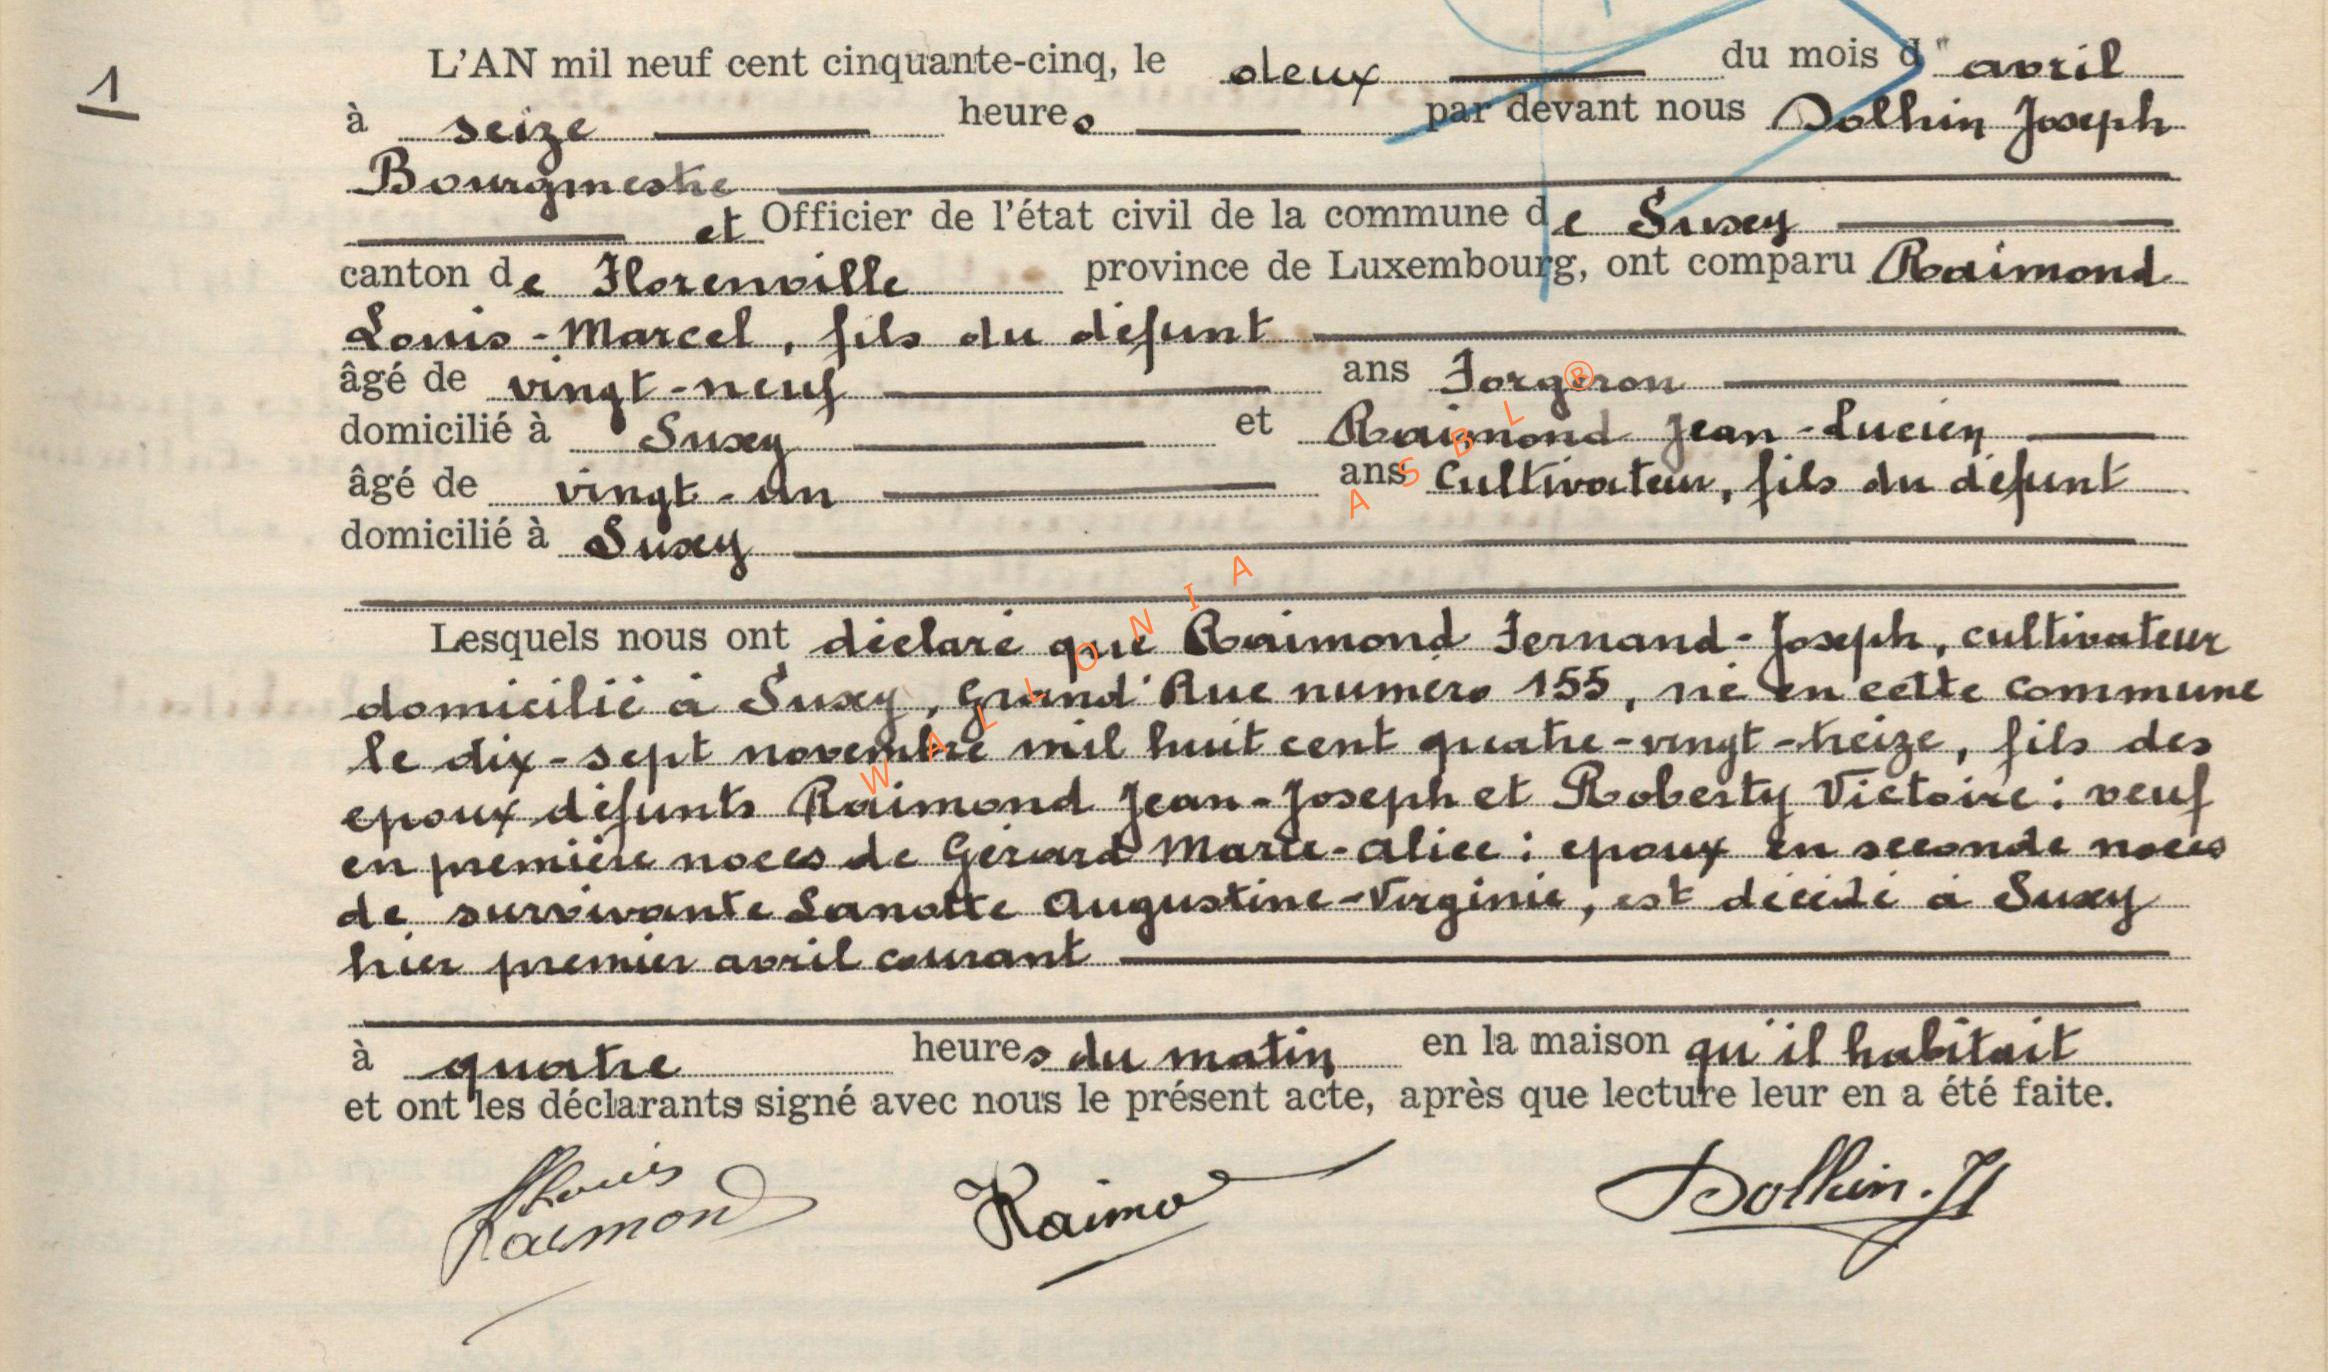 1
L'AN mil neuf cent cinquante-cinq, le deux du mois d'avril
à seize heures par devant nous Dolhin Joseph
Bourgmestre
et Officier de l'état civil de la commune de Suxey
canton de Florenville province de Luxembourg, ont comparu Raimond
Louis-Marcel, fils du défunt
âgé de vingt-neuf ans Forgeron
domicilié à Suxy et Raimond Jean-Lucien
âgé de vingt-un ans Cultivateur, fils du défunt
domicilié à Suxy
Lesquels nous ont déclaré que Raimond Fernand-Joseph, cultivateur
domicilié à Suxy, Grand'Rue numéro 155, né en cette commune
le dix-sept novembre mil huit cent quatre-vingt-treize, fils des
époux défunts Raimond Jean-Joseph et Roberty Victoire: veuf
en première noces de Gérard Marie-Alice: époux en seconde noces
de survivante Lanotte Augustine-Virginie, est décédé à Suxy
hier premier avril courant
à quatre heures du matin en la maison qu'il habitait
et ont les déclarants signé avec nous le présent acte, après que lecture leur en a été faite.
Louis Raimond Dolhin.J
WALLONIA ASBL ®